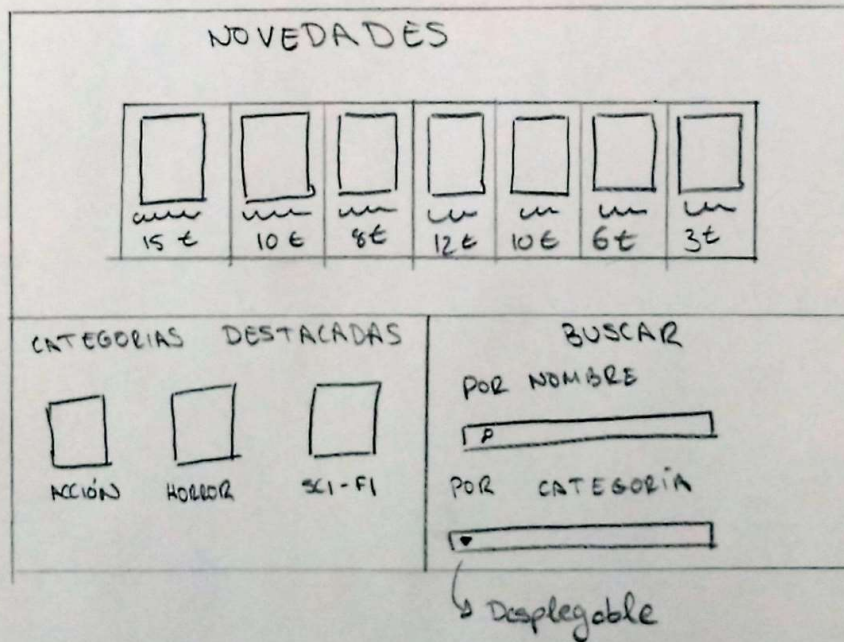 NOVEDADES
15 € 10 € 8€ 12€ 10€ 6€ 3€
CATEGORIAS DESTACADAS
ACCIÓN HORROR SCI-FI
BUSCAR
POR NOMBRE
POR CATEGORÍA
Desplegable